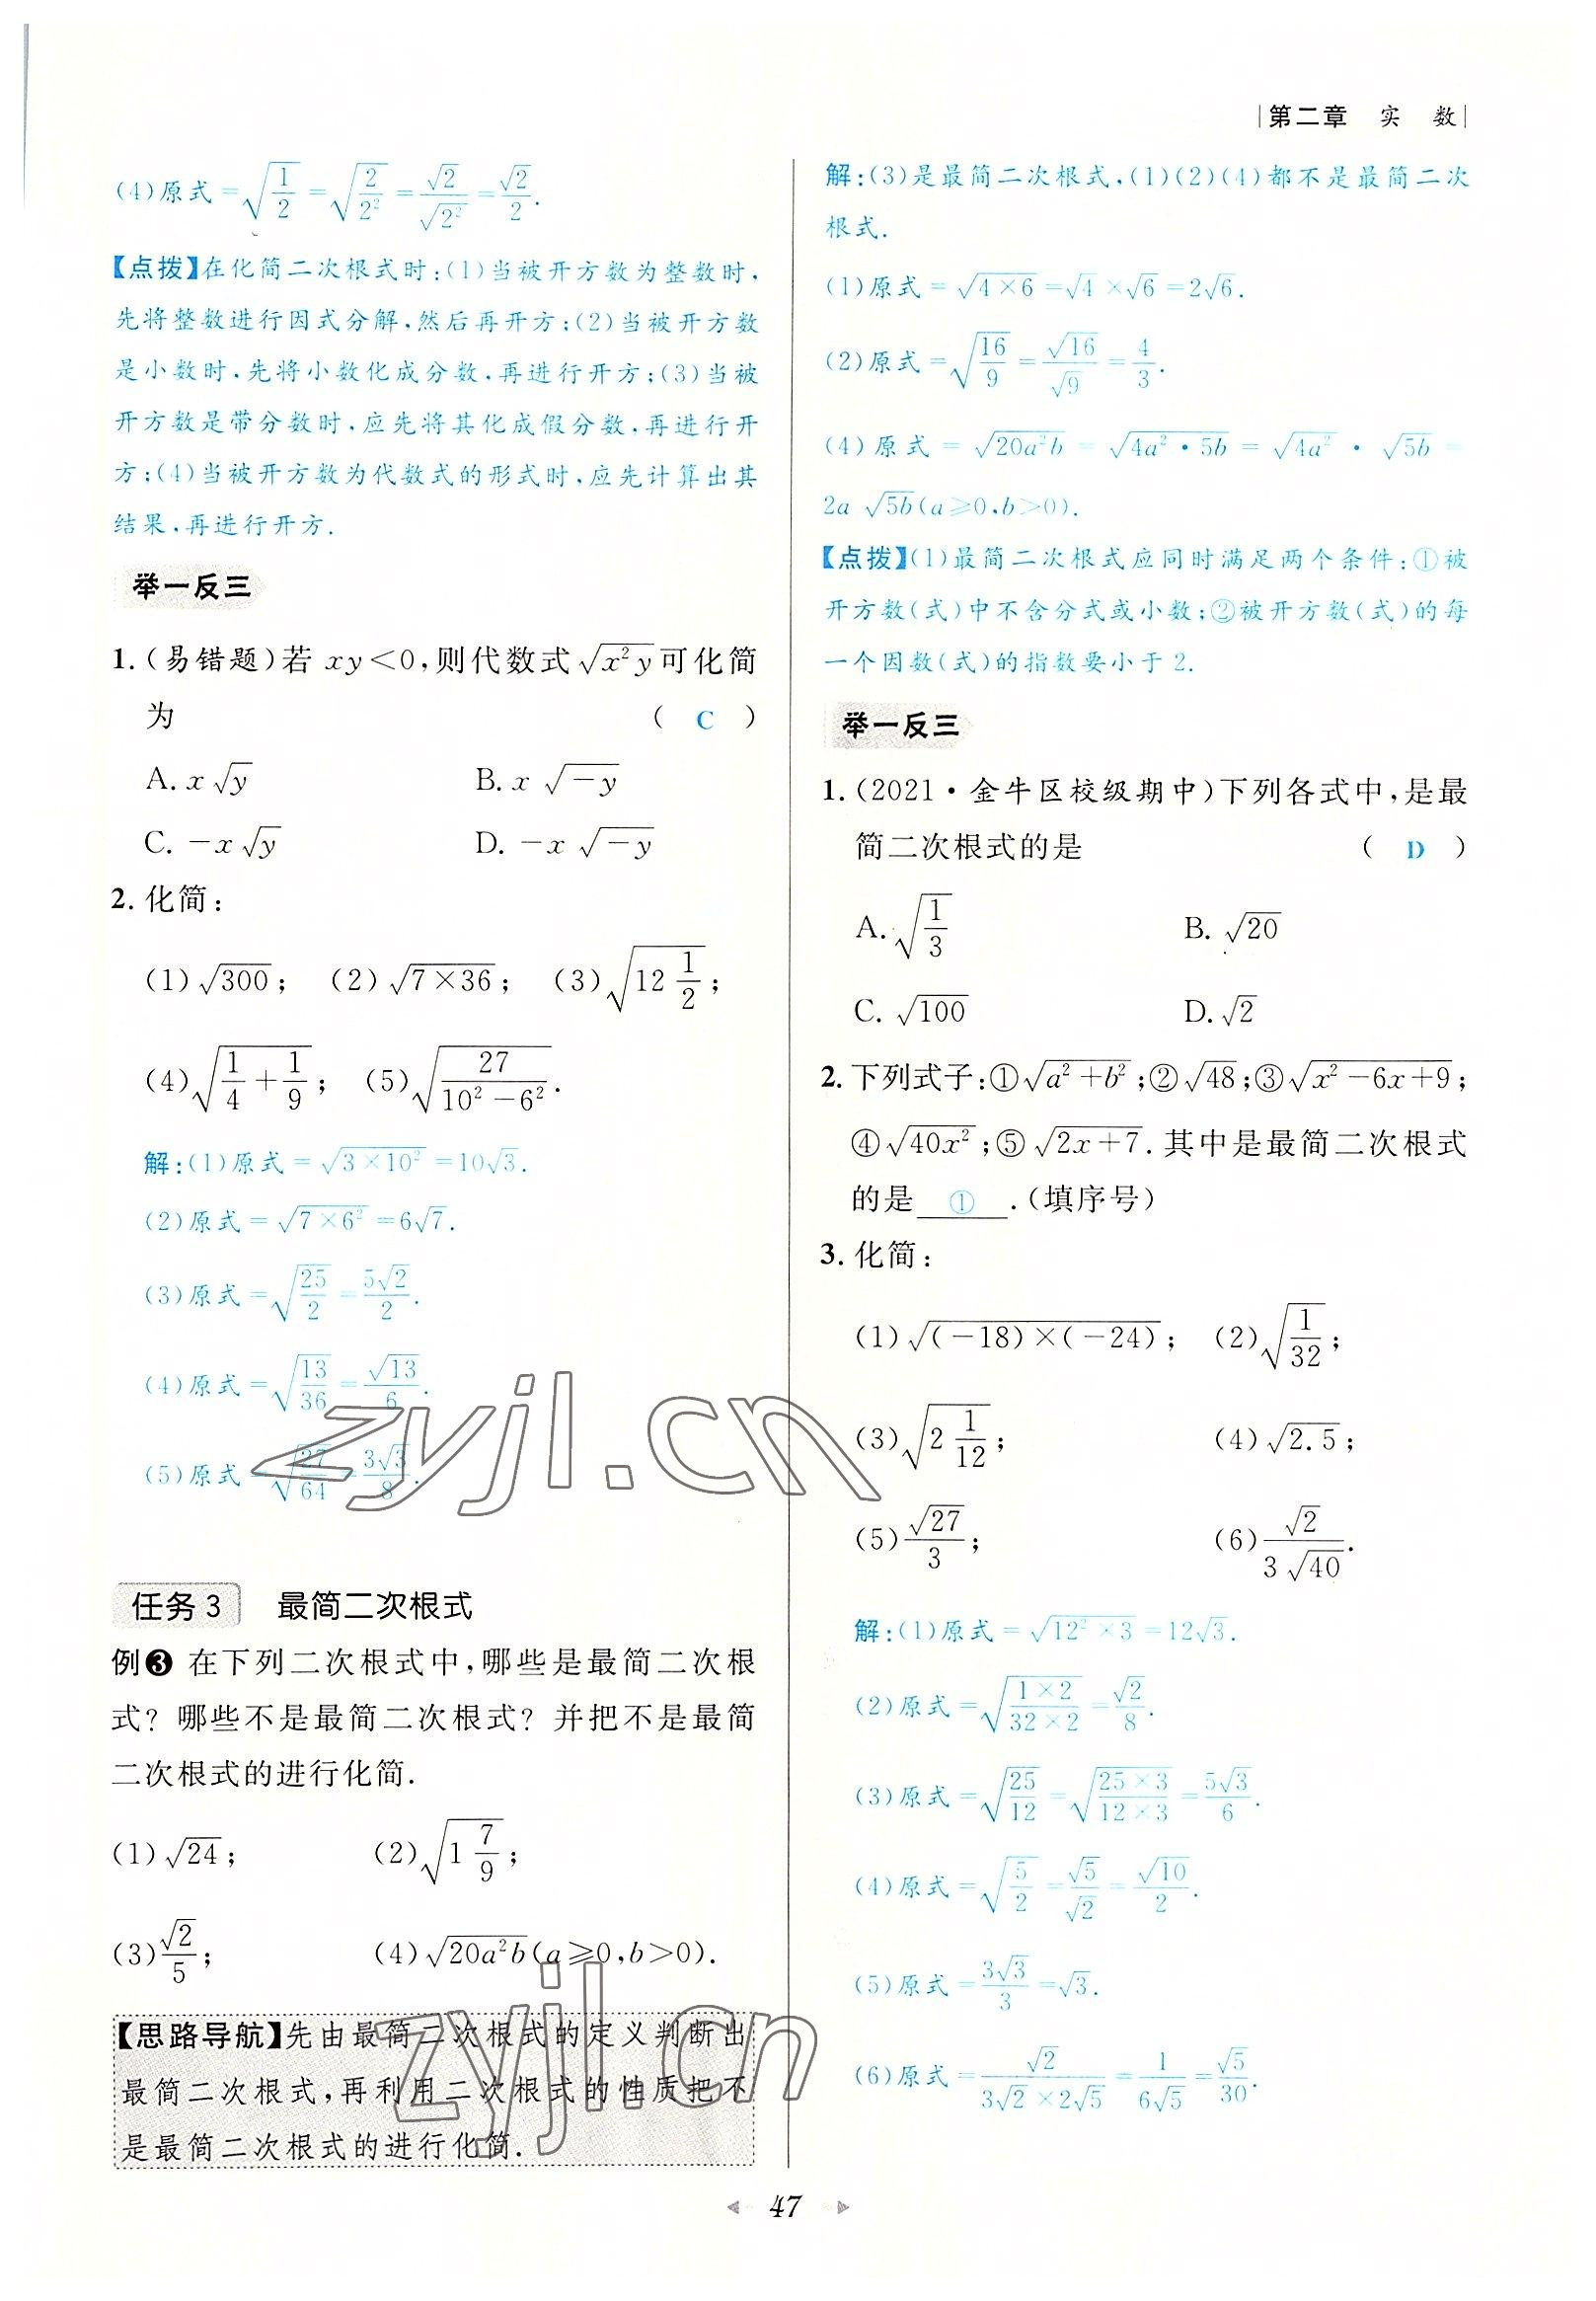 第二章 实 数
(4)原式=√(1/2)=√(2/2²)=√2/√2²=√2/2.
【点拨】在化简二次根式时:(1)当被开方数为整数时,
先将整数进行因式分解,然后再开方;(2)当被开方数
是小数时,先将小数化成分数,再进行开方;(3)当被
开方数是带分数时,应先将其化成假分数,再进行开
方;(4)当被开方数为代数式的形式时,应先计算出其
结果,再进行开方.
举一反三
1.(易错题)若 xy<0,则代数式√(x²y)可化简
为 ( C )
A. x√y B. x√(-y)
C. -x√y D. -x√(-y)
2. 化简:
(1)√300; (2)√(7×36); (3)√(12 1/2);
(4)√(1/4+1/9); (5)√(27/(10²-6²)).
解:(1)原式=√(3×10²)=10√3.
(2)原式=√(7×6²)=6√7.
(3)原式=√(25/2)=5√2/2.
(4)原式=√(13/36)=√13/6.
(5)原式=√(27/64)=3√3/8.
任务3 最简二次根式
例❸ 在下列二次根式中,哪些是最简二次根
式?哪些不是最简二次根式?并把不是最简
二次根式的进行化简.
(1)√24; (2)√(1 7/9);
(3)√2/5; (4)√(20a²b)(a≥0,b>0).
【思路导航】先由最简二次根式的定义判断出
最简二次根式,再利用二次根式的性质把不
是最简二次根式的进行化简.
解:(3)是最简二次根式,(1)(2)(4)都不是最简二次
根式.
(1)原式=√(4×6)=√4×√6=2√6.
(2)原式=√(16/9)=√16/√9=4/3.
(4)原式=√(20a²b)=√(4a²·5b)=√(4a²)·√(5b)=
2a√(5b)(a≥0,b>0).
【点拨】(1)最简二次根式应同时满足两个条件:①被
开方数(式)中不含分式或小数;②被开方数(式)的每
一个因数(式)的指数要小于2.
举一反三
1.(2021·金牛区校级期中)下列各式中,是最
简二次根式的是 ( D )
A. √(1/3) B. √20
C. √100 D. √2
2. 下列式子:①√(a²+b²);②√48;③√(x²-6x+9);
④√(40x²);⑤√(2x+7).其中是最简二次根式
的是 ① .(填序号)
3. 化简:
(1)√((-18)×(-24)); (2)√(1/32);
(3)√(2 1/12); (4)√2.5;
(5)√27/3; (6)√2/(3√40).
解:(1)原式=√(12²×3)=12√3.
(2)原式=√((1×2)/(32×2))=√2/8.
(3)原式=√(25/12)=√((25×3)/(12×3))=5√3/6.
(4)原式=√(5/2)=√5/√2=√10/2.
(5)原式=3√3/3=√3.
(6)原式=√2/(3√2×2√5)=1/(6√5)=√5/30.
47
zyjl.cn
zyjl.cn